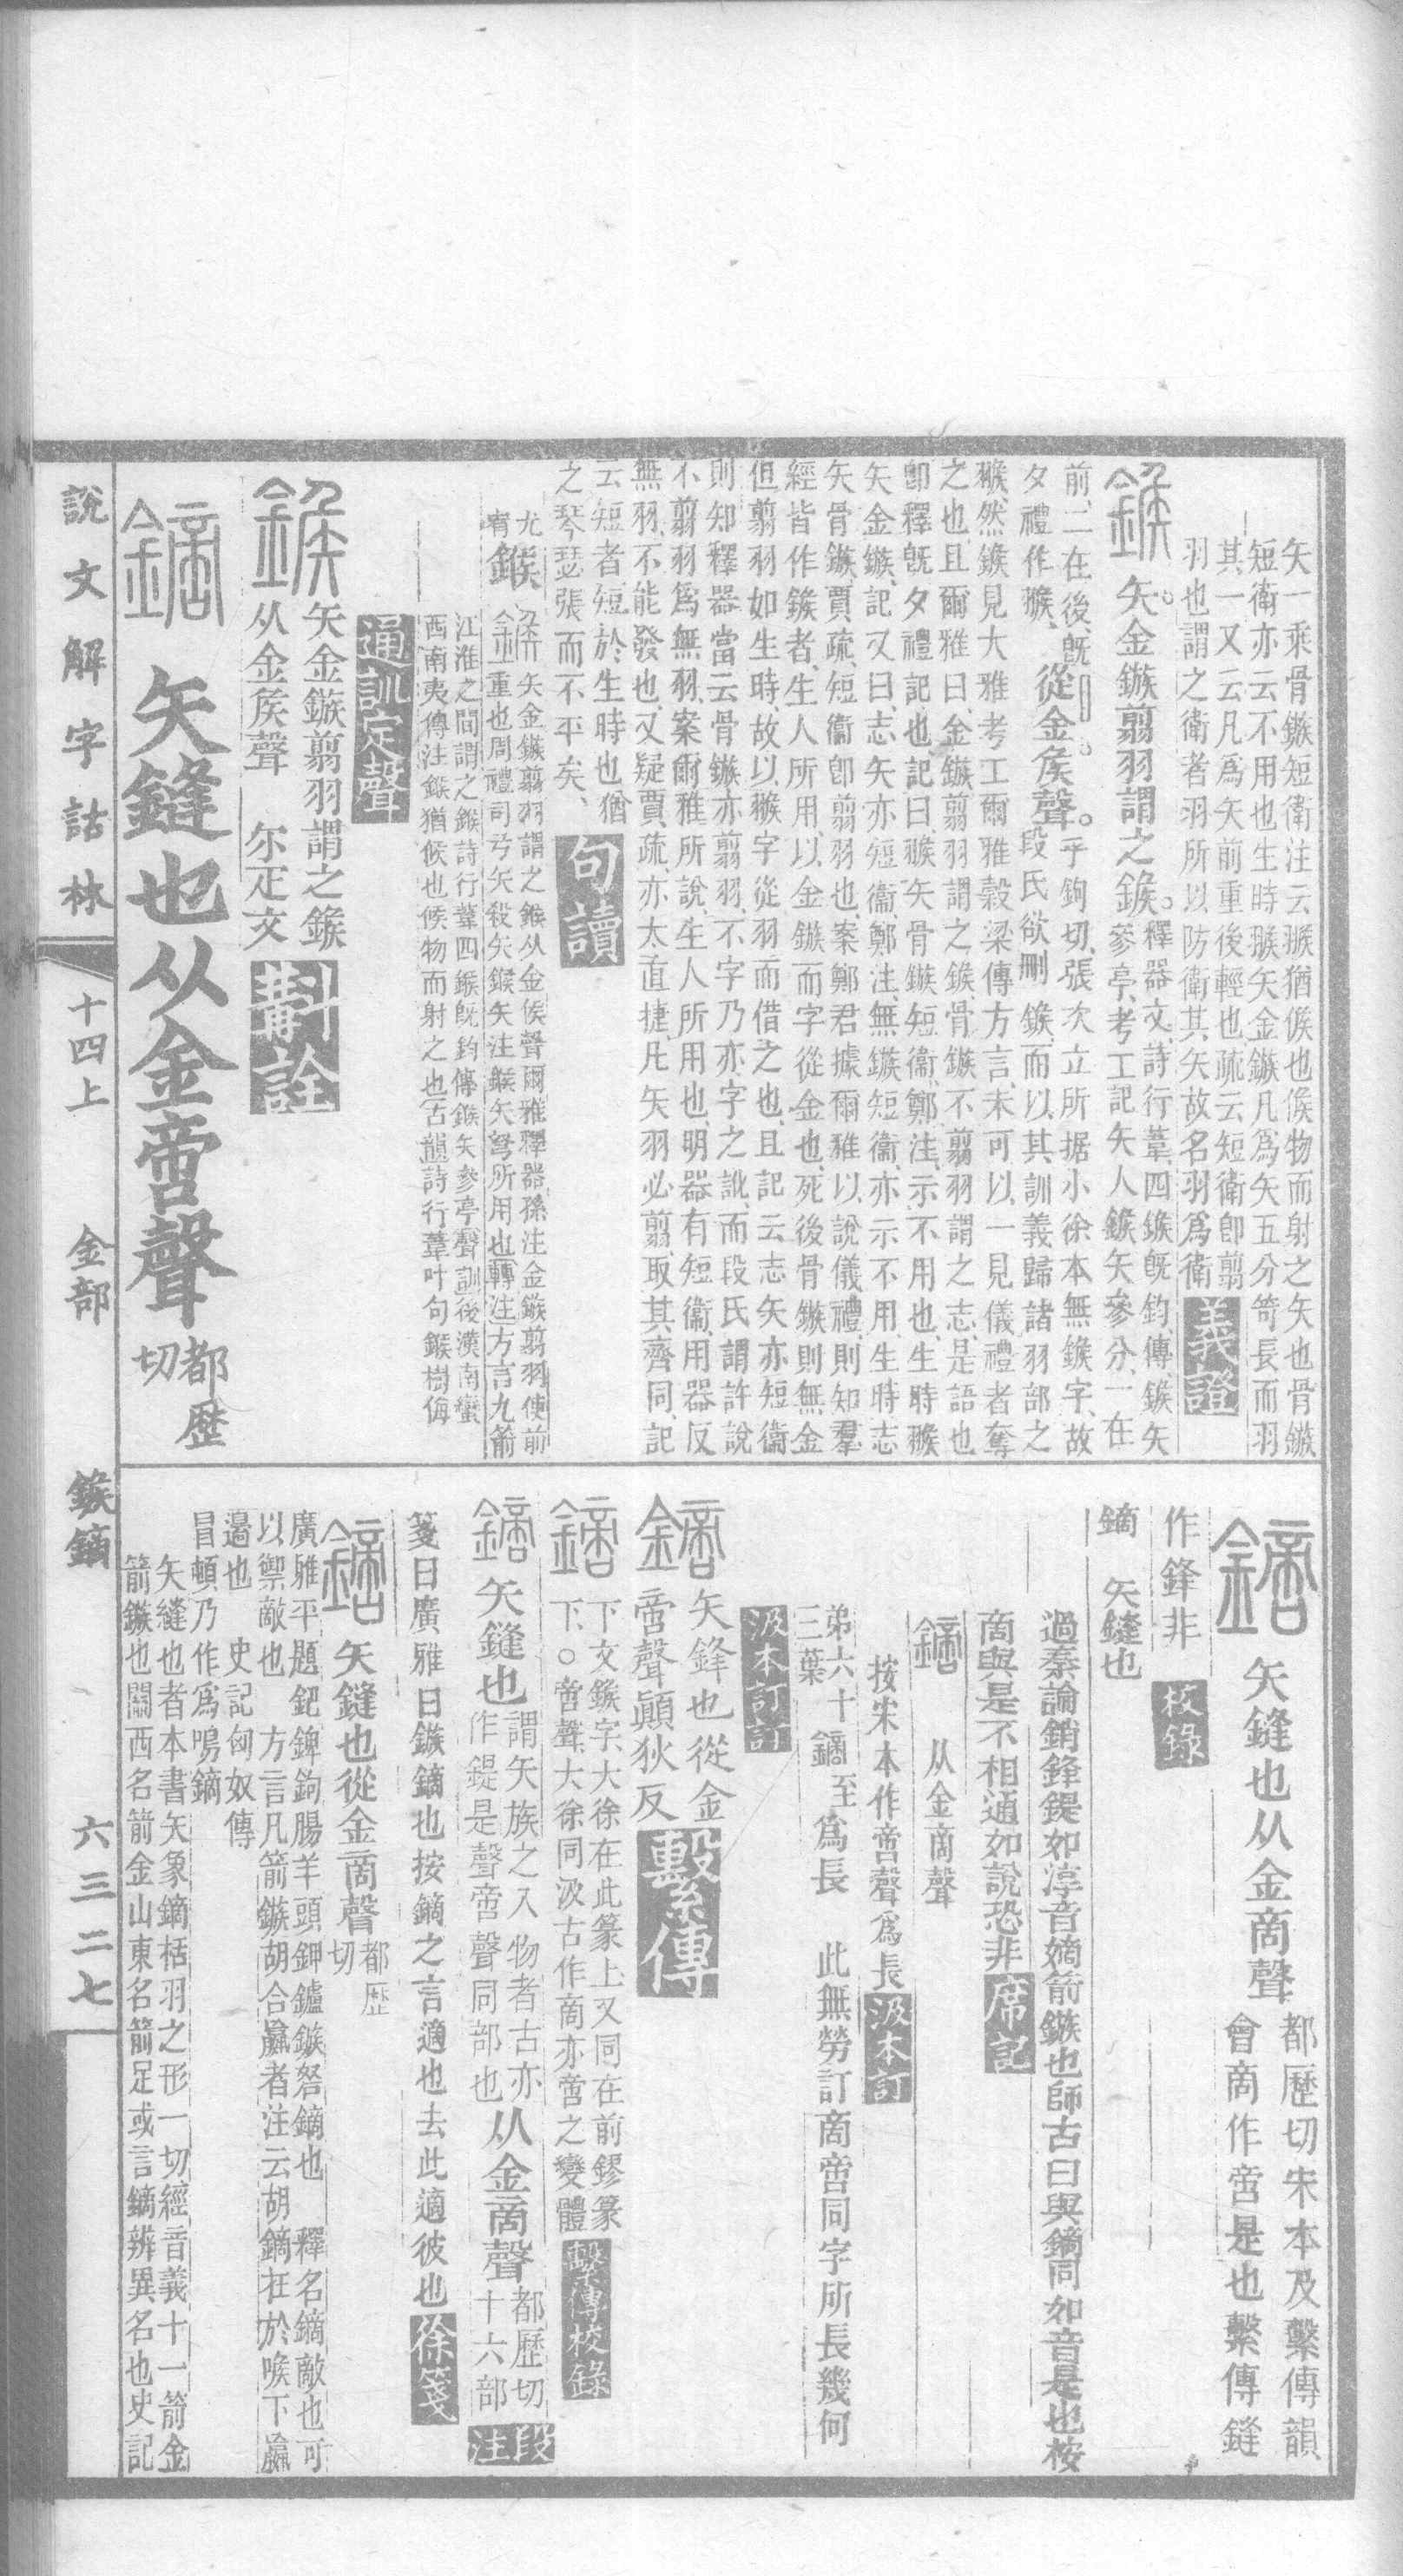 矢一乘骨鏃短衛注云猴猶候也候物而射之矢也骨鏃
短衛亦云不用也生時猴矢金鏃凡爲矢五分笴長而羽
其一又云凡爲矢前重後輕也疏云短衛卽翦
羽也謂之衛者羽所以防衛其矢故名羽爲衛 義證
矢金鏃翦羽謂之鍭。釋器文、詩行葦、四鍭旣鈞、傳、鍭矢
參亭、考工記矢人鍭矢參分、一在
前、二在後、旣 從金矦聲。乎鉤切、張次立所据小徐本無鍭字、故
夕禮作猴、段氏欲刪鍭、而以其訓義歸諸羽部之
猴、然鍭見大雅考工爾雅穀梁傳方言、未可以一見儀禮者奪
之也、且爾雅曰、金鏃翦羽謂之鍭、骨鏃不翦羽謂之志、是語也
卽釋旣夕禮記也、記曰、猴矢骨鏃、短衞、鄭注、示不用也、生時猴
矢金鏃、記又曰、志矢亦短衞、鄭注、無鏃短衞、亦示不用生時志
矢骨鏃、賈疏、短衞卽翦羽也、案鄭君據爾雅以說儀禮、則知羣
經皆作鍭者、生人所用、以金鏃而字從金也、死後骨鏃則無金
但翦羽如生時、故以猴字從羽而借之也、且記云志矢亦短衞
則知釋器當云骨鏃亦翦羽、不字乃亦字之訛、而段氏謂許說
不翦羽爲無羽、案爾雅所說、生人所用也、明器有短衞、用器反
無羽、不能發也、又疑賈疏、亦太直捷、凡矢羽必翦、取其齊同、記
云短者、短於生時也、猶
之琴瑟張而不平矣、 句讀
鍭 矢金鏃翦羽謂之鍭从金矦聲爾雅釋器孫注金鏃翦羽使前
重也周禮司弓矢殺矢鍭矢注鍭矢弩所用也轉注方言九箭
江淮之間謂之鍭詩行葦四鍭旣鈞傳鍭矢參亭聲訓後漢南蠻
西南夷傳注鍭猶候也候物而射之也古韻詩行葦叶句鍭樹侮
通訓定聲
矢金鏃翦羽謂之鍭
从金矦聲 斠詮
鏑 矢鏠也从金啻聲 都歷切
說文解字詁林 十四上 金部 鍭鏑 六三二七
鏑 矢鏠也从金啇聲 都歷切宋本及繫傳韻
會啇作啻是也繫傳鏠
作鋒非 校錄
鏑 矢鏠也
過秦論銷鋒鍉如淳音嫡箭鏃也師古曰與鏑同如音是也桉
啇與是不相通如說恐非 席記
鏑 从金啇聲
按宋本作啻聲爲長 汲本訂
弟六十三葉 鏑至爲長 此無勞訂啇啻同字所長幾何
汲本訂訂
鏑 矢鋒也從金
啻聲顚狄反 繫傳
下文鏃字、大徐在此篆上又同在前鏐篆
下。○啻聲、大徐同汲古作啇亦啻之變體 繫傳校錄
鏑 矢鏠也 謂矢族之入物者古亦
作鍉是聲啻聲同部也 从金啇聲 都歷切十六部 段注
箋曰廣雅曰鏃鏑也按鏑之言適也去此適彼也 徐箋
鏑 矢鏠也從金啇聲 都歷切
廣雅平題鈀錍鉤腸羊頭鉀鑪鏃砮鏑也 釋名鏑敵也可
以禦敵也 方言凡箭鏃胡合嬴者注云胡鏑在於喉下嬴
邊也 史記匈奴傳
冒頓乃作爲鳴鏑
矢縫也者本書矢象鏑栝羽之形一切經音義十一箭金
箭鏃也關西名箭金山東名箭足或言鏑辨異名也史記